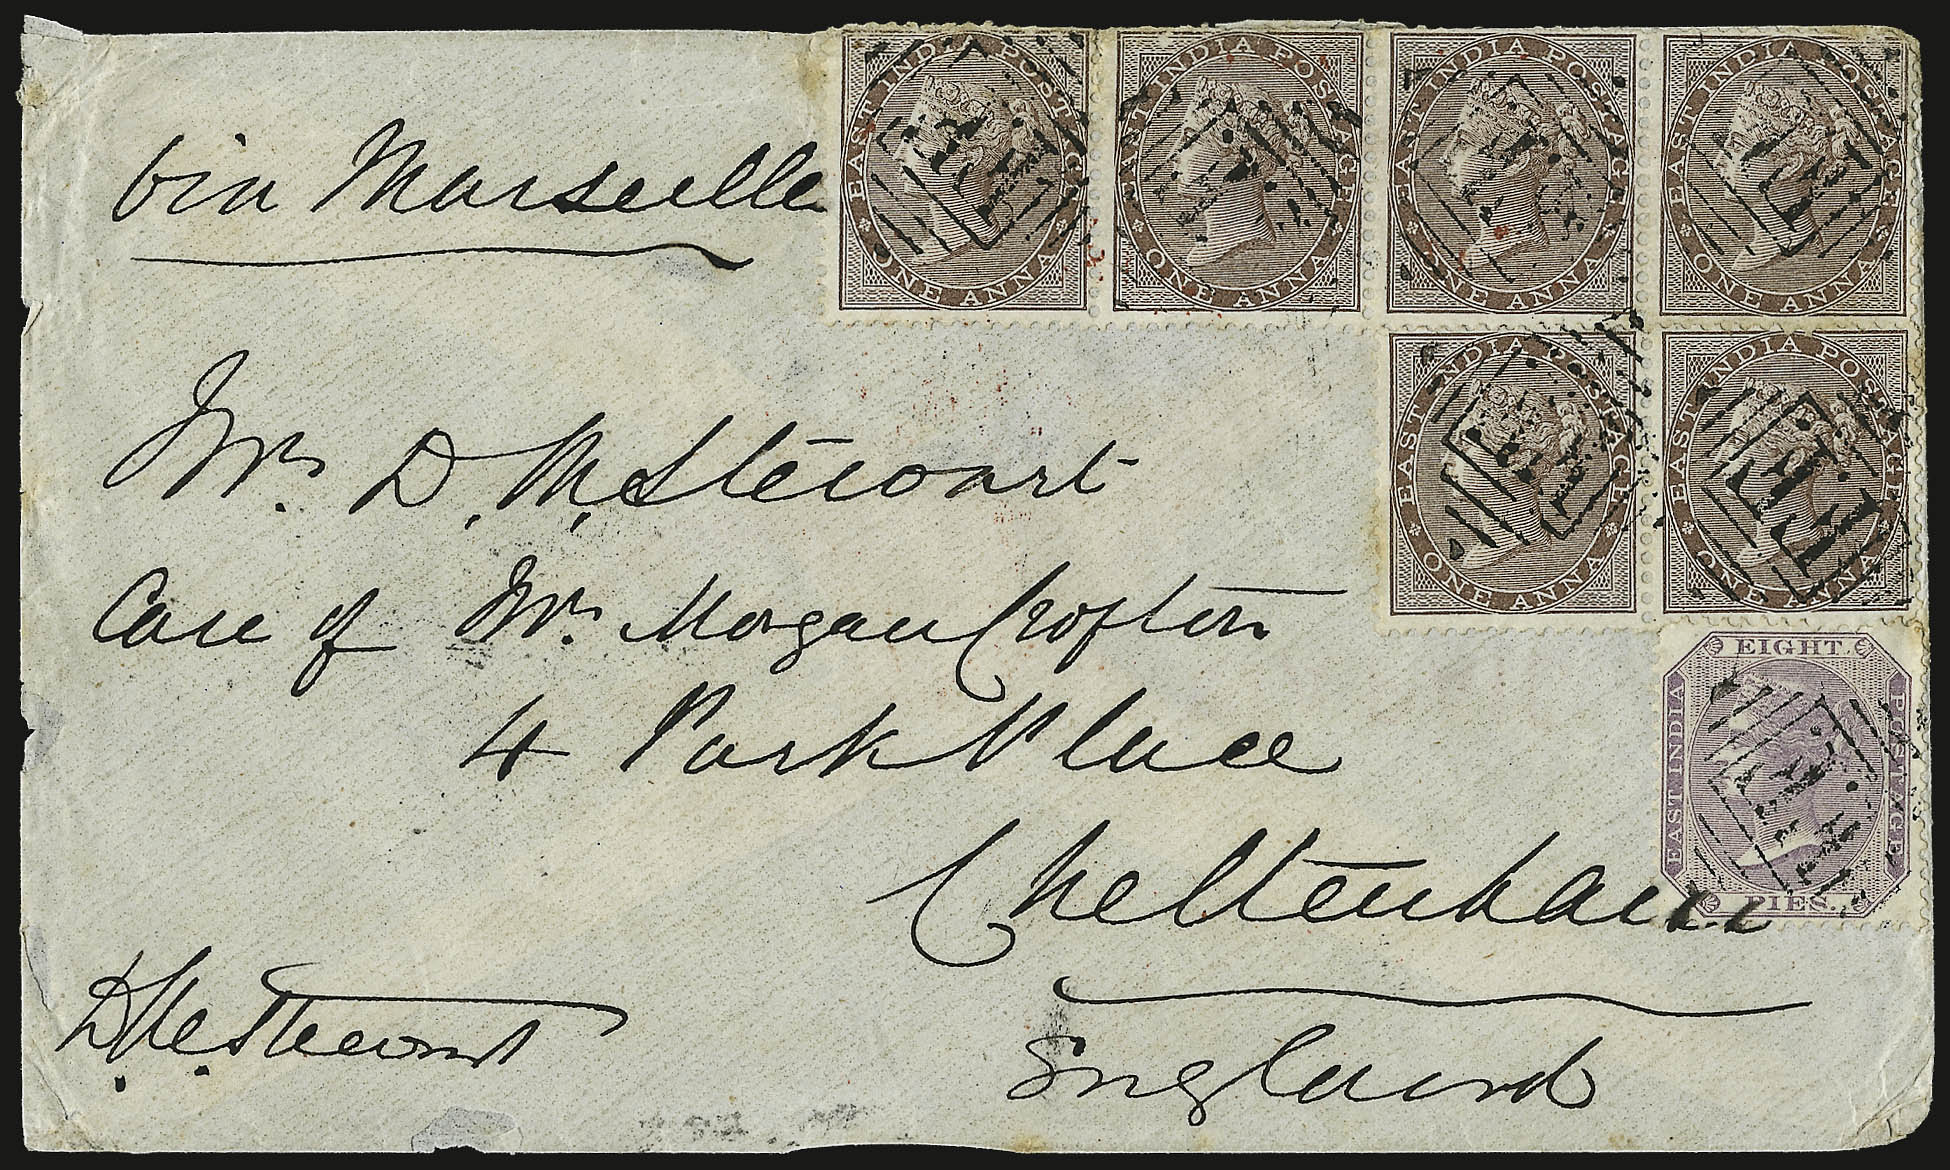 EAST INDIA POSTAGE EAST INDIA POSTAGE EAST INDIA POSTAGE EAST INDIA POSTAGE
ONE ANNA ONE ANNA ONE ANNA ONE ANNA
via Marseille
EAST INDIA POSTAGE EAST INDIA POSTAGE
ONE ANNA ONE ANNA
Mrs D. McStewart
Care of Mrs. Morgan Crofton
4 Park Place
EIGHT
EAST INDIA POSTAGE
PIES.
Cheltenham
England
D McStewart